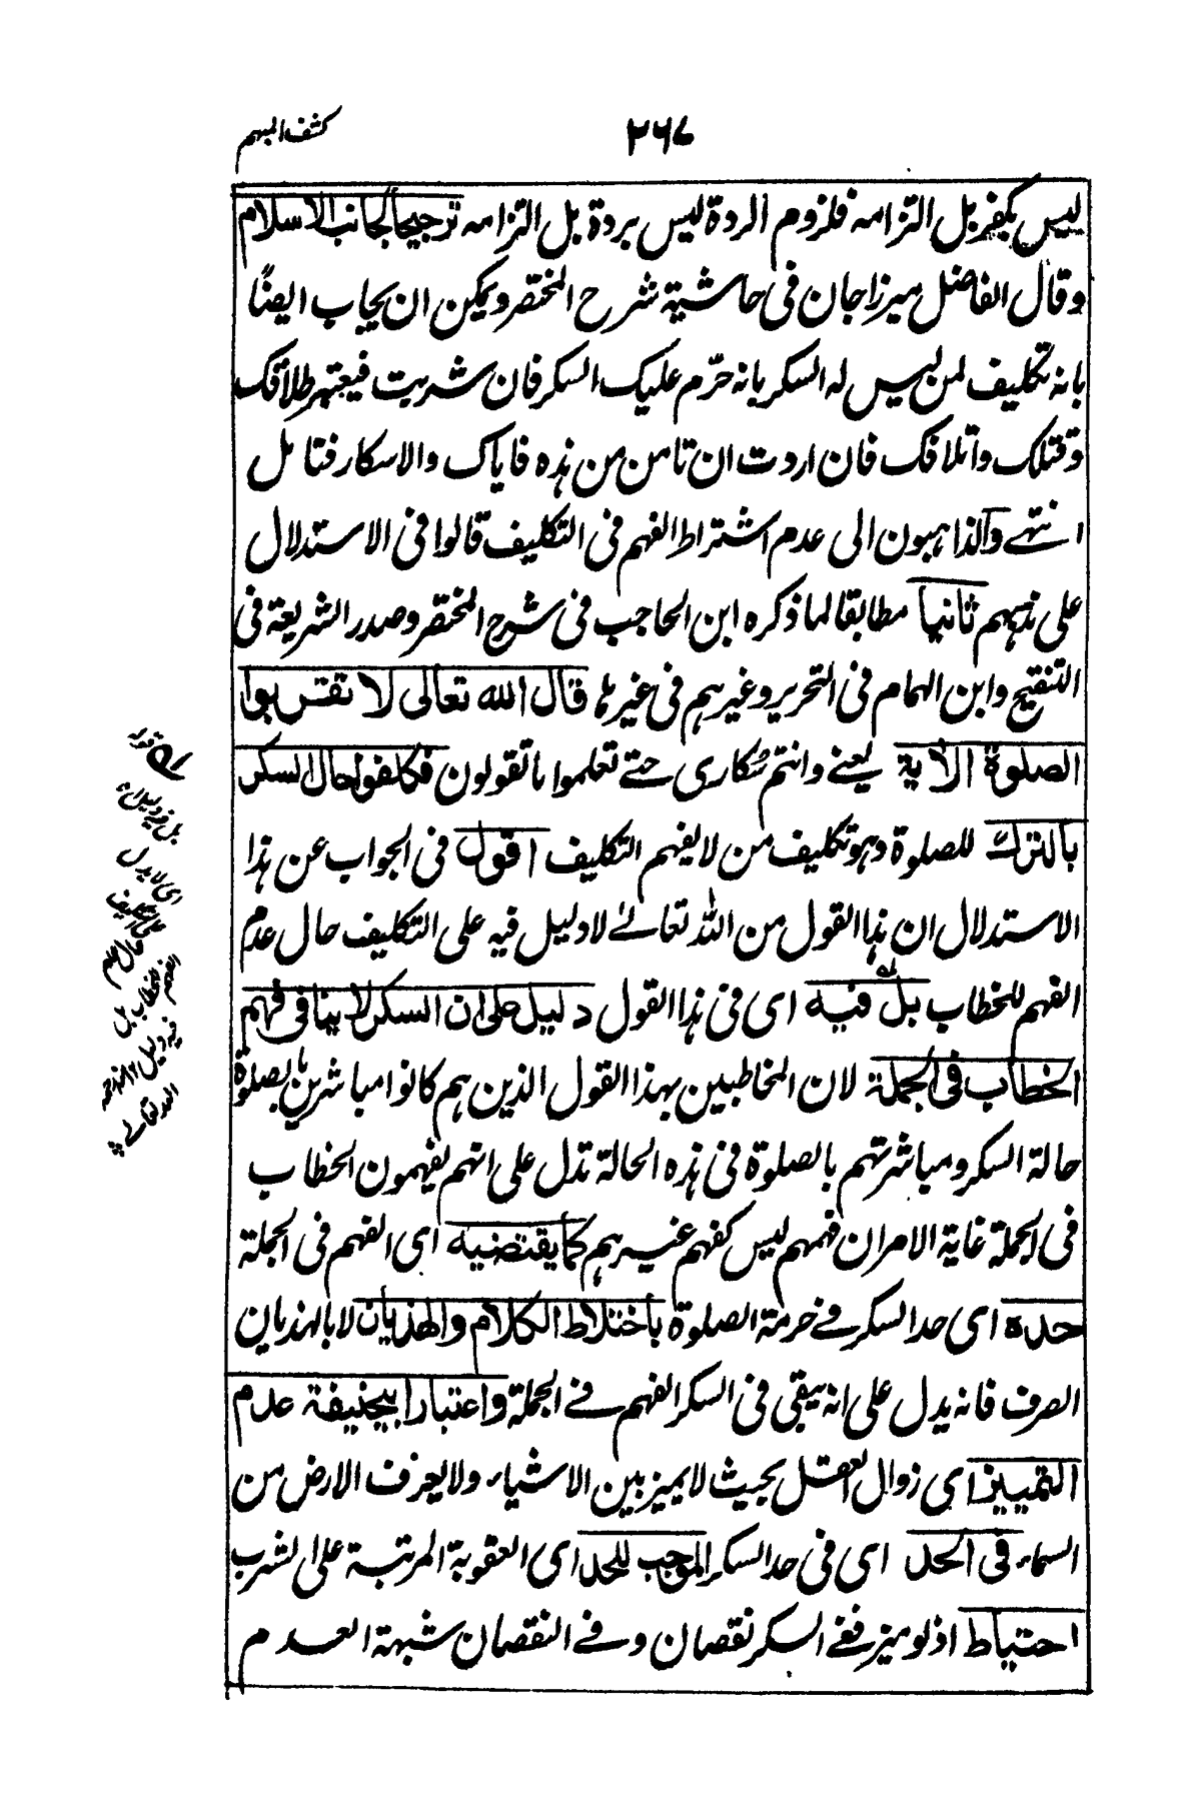 ۲۶۷
كشف المبهم
ليس بكفر بل التزامه فلزوم الردة ليس بردة بل التزامه ترجيحا لجانب الاسلام
وقال الفاضل ميرزا جان فى حاشية شرح المختصر ويمكن ان يجاب ايضًا
بانه تكليف لمن ليس له السكر بانه حرّم عليك السكر فان شربت فيعتبر طلاقك
وقتلك واتلافك فان اردت ان تامن من هذه فاياك والاسكار فتامل
انتهے والذاهبون الى عدم اشتراط الفهم فى التكليف قالوا فى الاستدلال
على مذهبهم ثانيا مطابقا لما ذكره ابن الحاجب فى شرح المختصر وصدر الشريعة فى
التنقيح وابن الهمام فى التحرير وغيرهم فى غيرها قال الله تعالى لا تقربوا
الصلوة الآية يعنے وانتم سُكارى حتے تعلموا ما تقولون فكلفوا حال السكر
بالترك للصلوة وهو تكليف من لا يفهم التكليف اقول فى الجواب عن هذا
الاستدلال ان هذا القول من الله تعالے لا دليل فيه على التكليف حال عدم
الفهم للخطاب بل فيه اى فى هذا القول دليل على ان السكر لا ينافى فهم
الخطاب فى الجملة لان المخاطبين بهذا القول الذين هم كانوا مباشرين بالصلوة
حالة السكر ومباشرتهم بالصلوة فى هذه الحالة تدل على انهم يفهمون الخطاب
فى الجملة غاية الامر ان فهمهم ليس كفهم غيرهم كما يقتضيه اى الفهم فى الجملة
حده اى حد السكر فے حرمة الصلوة باختلاط الكلام والهذيان لا بالهذيان
الصرف فانه يدل على انه يبقى فى السكر الفهم فے الجملة واعتبار ابيحنيفة عدم
التمييز اى زوال العقل بحيث لا يميز بين الاشياء ولا يعرف الارض من
السماء فى الحد اى فى حد السكر الموجب للحد اى العقوبة المرتبة على الشرب
احتياط اذ لو ميز ففے السكر نقصان وفے النقصان شبهة العدم
قوله
بل فيه دليل
اى لا يدل
على التكليف
حال عدم
الفهم للخطاب بل
فيه دليل الخ منه رحمه
الله تعالے